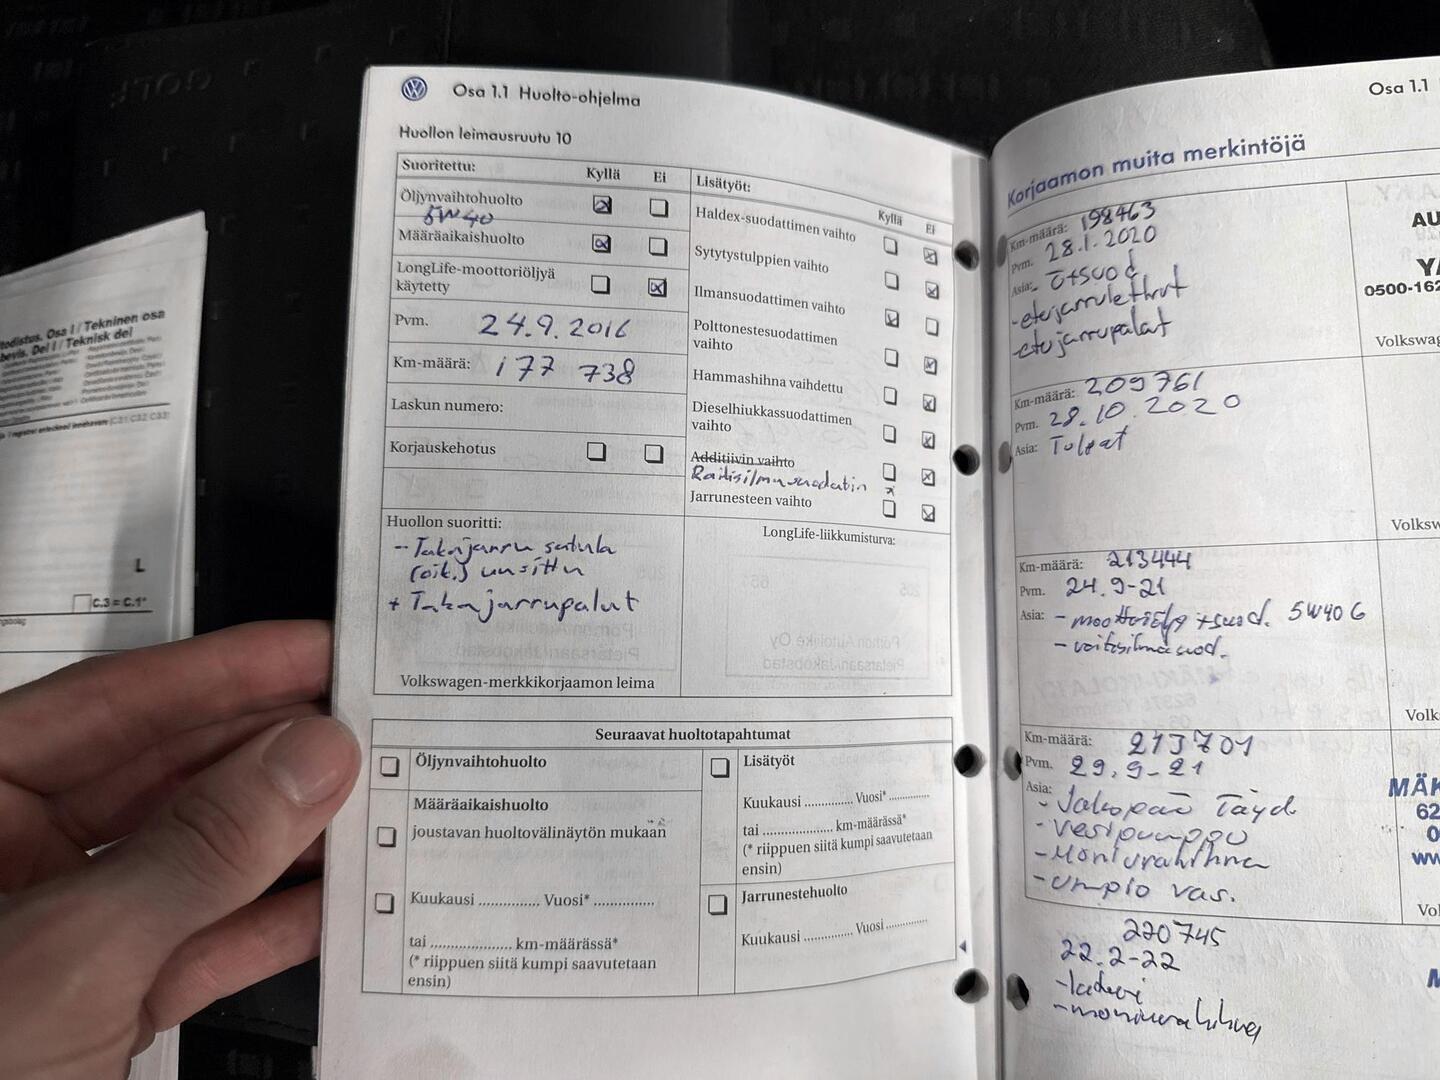 GOLF
todistus. Osa I / Tekninen osa
bevis. Del I / Teknisk del
L
C.3 = C.1*
Osa 1.1 Huolto-ohjelma
Huollon leimausruutu 10
Suoritettu: Kyllä Ei
Öljynvaihtohuolto
5W40
Määräaikaishuolto
LongLife-moottoriöljyä
käytetty
Pvm. 24.9.2016
Km-määrä: 177 738
Laskun numero:
Korjauskehotus
Huollon suoritti:
- Takajarru satula
(oik.) uusittu
+ Takajarrupalat
Volkswagen-merkkikorjaamon leima
Lisätyöt: Kyllä Ei
Haldex-suodattimen vaihto
Sytytystulppien vaihto
Ilmansuodattimen vaihto
Polttonestesuodattimen
vaihto
Hammashihna vaihdettu
Dieselhiukkassuodattimen
vaihto
Additiivin vaihto
Raitisilmasuodatin
Jarrunesteen vaihto
LongLife-liikkumisturva:
Seuraavat huoltotapahtumat
Öljynvaihtohuolto
Määräaikaishuolto
joustavan huoltovälinäytön mukaan
Kuukausi .............. Vuosi* ..............
tai .................... km-määrässä*
(* riippuen siitä kumpi saavutetaan
ensin)
Lisätyöt
Kuukausi .............. Vuosi* ..............
tai .................... km-määrässä*
(* riippuen siitä kumpi saavutetaan
ensin)
Jarrunestehuolto
Kuukausi .............. Vuosi ..............
Osa 1.1
Korjaamon muita merkintöjä
Km-määrä: 198463
Pvm. 28.1.2020
Asia: - ö+suod
- etujarrulethut
- etujarrupalat
AU
0500-162
Volkswag
Km-määrä: 209761
Pvm. 28.10.2020
Asia: Tulpat
Volksw
Km-määrä: 213444
Pvm. 24.9-21
Asia: - moottoriöljy +suod. 5W40 G
- raitisilmasuod.
Volk
Km-määrä: 213701
Pvm. 29.9-21
Asia: - Jakopää Täyd.
- Vesipumppu
- Moniurahihna
- umpio vas.
MÄK
62
0
ww
Vol
220745
22.2-22
- laturi
- moniurahihna